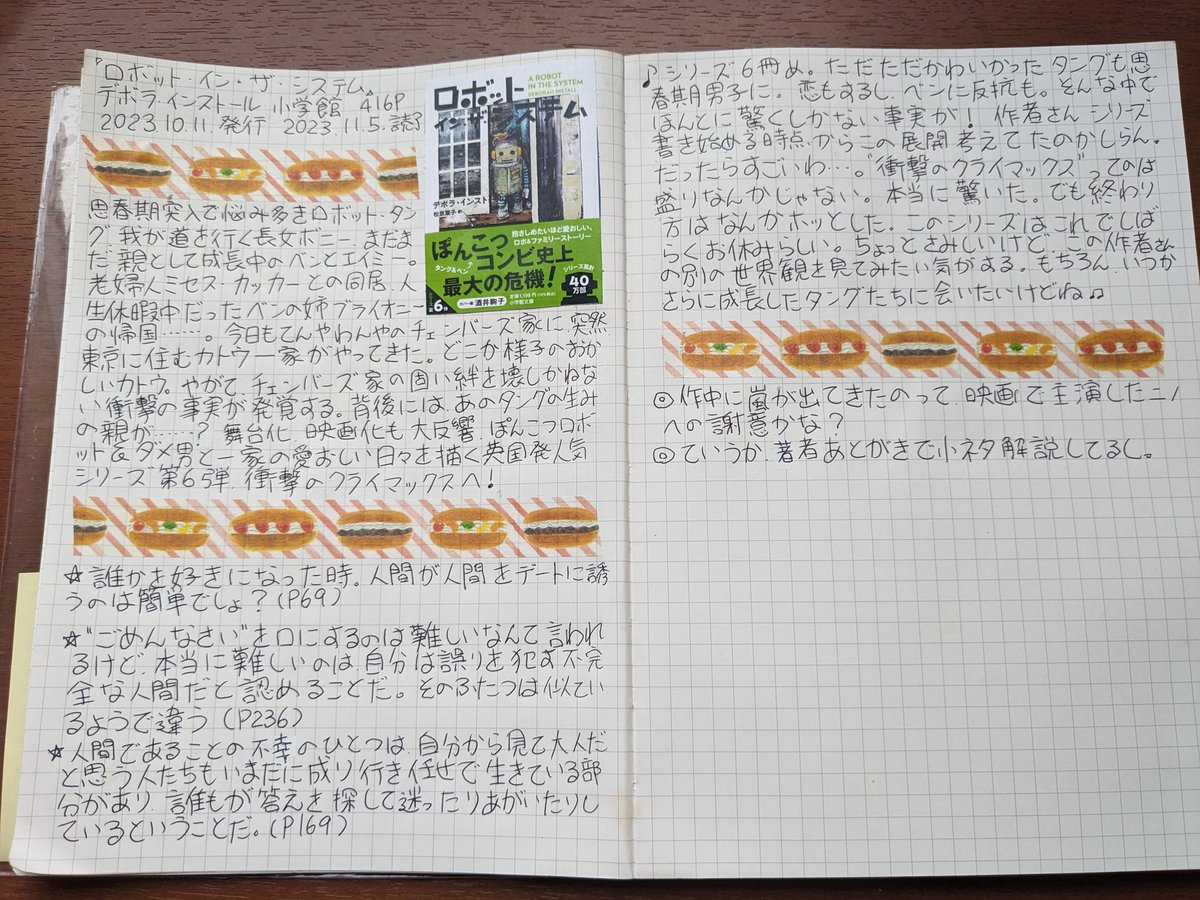 『ロボット・イン・ザ・システム』
デボラ・インストール 小学館 416P
2023.10.11.発行 2023.11.5.読了
A ROBOT
IN THE SYSTEM
DEBORAH INSTALL
ロボット
イン・ザ・システム
デボラ・インスト
松原葉子 訳
抱きしめたいほど愛おしい、
ロボ&ファミリーストーリー
ぽんこつ
タング&ベン
コンビ史上
最大の危機!
シリーズ累計
40
万部
第6弾
カバー画 酒井駒子
定価1,199円(10%税込)
小学館文庫
思春期突入で悩み多きロボット・タン
グ、我が道を行く長女ボニー、まだま
だ親として成長中のベンとエイミー。
老婦人ミセス・カッカーとの同居、人
生休暇中だったベンの姉ブライオニー
の帰国……。今日もてんやわんやのチェンバーズ家に突然
東京に住むカトウ一家がやってきた。どこか様子のおか
しいカトウ。やがて、チェンバーズ家の固い絆を壊しかねな
い衝撃の事実が発覚する。背後には、あのタングの生み
の親が……? 舞台化、映画化も大反響 ぽんこつロボ
ット&ダメ男と一家の愛おしい日々を描く英国発人気
シリーズ第6弾、衝撃のクライマックスへ!
☆誰かを好きになった時。人間が人間をデートに誘
うのは簡単でしょ?(P69)
☆“ごめんなさい”を口にするのは難しいなんて言われ
るけど、本当に難しいのは、自分は誤りを犯す不完
全な人間だと認めることだ。そのふたつは似てい
るようで違う(P236)
☆人間であることの不幸のひとつは、自分から見て大人だ
と思う人たちもいまだに成り行き任せで生きている部
分があり、誰もが答えを探して迷ったりあがいたりし
ているということだ。(P169)
♪シリーズ6冊め。ただただかわいかったタングも思
春期男子に。恋もするし、ベンに反抗も。そんな中で
ほんとに驚くしかない事実が! 作者さん、シリーズ
書き始める時点からこの展開考えてたのかしらん。
だったらすごいわ…。“衝撃のクライマックズ”ってのは
盛りなんかじゃない。本当に驚いた。でも終わり
方はなんかホッとした。このシリーズは、これでしば
らくお休みらしい。ちょっとさみしいけど、この作者さん
の別の世界観を見てみたい気がする。もちろん、いつか
さらに成長したタングたちに会いたいけどね♫
◎作中に嵐が出てきたのって、映画で主演したニノ
への謝意かな?
◎ていうか、著者あとがきで小ネタ解説してるし。